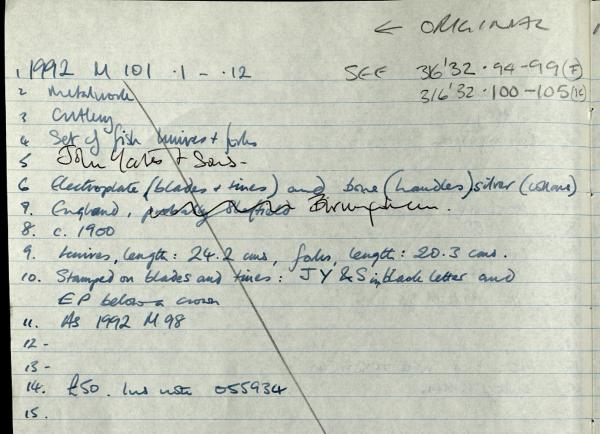 ← ORIGINAL
1. 1992 M 101 .1 - .12 SEE 316'32.94-99(F)
2 Metalwork 316'32.100-105(K)
3 Cutlery
4 Set of fish knives + forks
5 John Yates + Sons -
6 Electroplate (blades + tines) and bone (handles) silver (collars)
7. England, probably Sheffield Birmingham.
8. c. 1900
9. knives, length: 24.2 cms, forks, length: 20.3 cms.
10. Stamped on blades and tines: JY & S in black letter and
EP below a crown
11. As 1992 M 98
12 -
13 -
14. £50. note 055934
15.